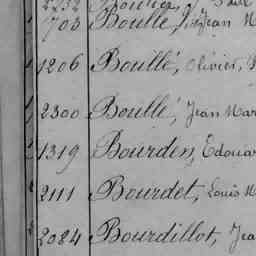 2232
703 Boullé, Jean M
1206 Bouillé, Olivier,
2300 Boullé, Jean Mar
1319 Bourden, Edouar
2111 Bourdet, Louis M
2084 Bourdillot, Jea